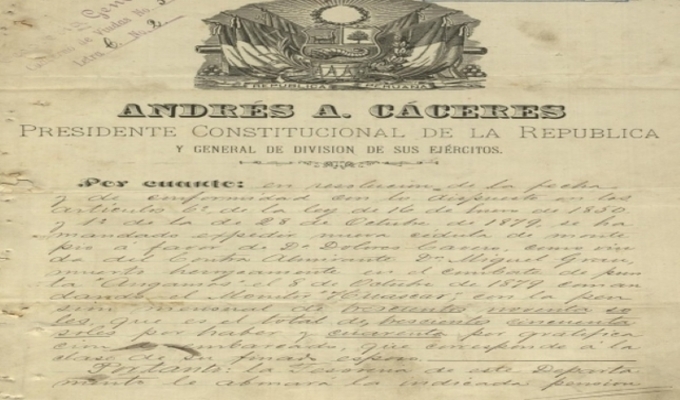 Letra C. No. 2
REPUBLICA PERUANA
ANDRÉS A. CÁCERES
PRESIDENTE CONSTITUCIONAL DE LA REPUBLICA
Y GENERAL DE DIVISION DE SUS EJÉRCITOS.
Por cuanto: en resolucion de la fecha
y de conformidad con lo dispuesto en los
articulos 6º. de la ley de 16 de Enero de 1850
y 1º de la de 28 de Octubre de 1879, se ha
mandado expedir nueva cédula de monte
pio á favor de Dª Dolores Cavero, como viu
da del Contra Almirante Dn. Miguel Grau,
muerto heroycamente en el combate de pun
ta "Angamos" el 8 de Octubre de 1879 coman
dando el Monitor "Huascar", con la pen
sion mensual de trescientos noventa so
les, que es el total de trescientos cincuenta
soles por haber y cuarenta por gratifica
cion de embarcado, que corresponde á la
clase de su finado esposo.
Por tanto: la Tesoreria de este Departa
mento le abonará la indicada pension